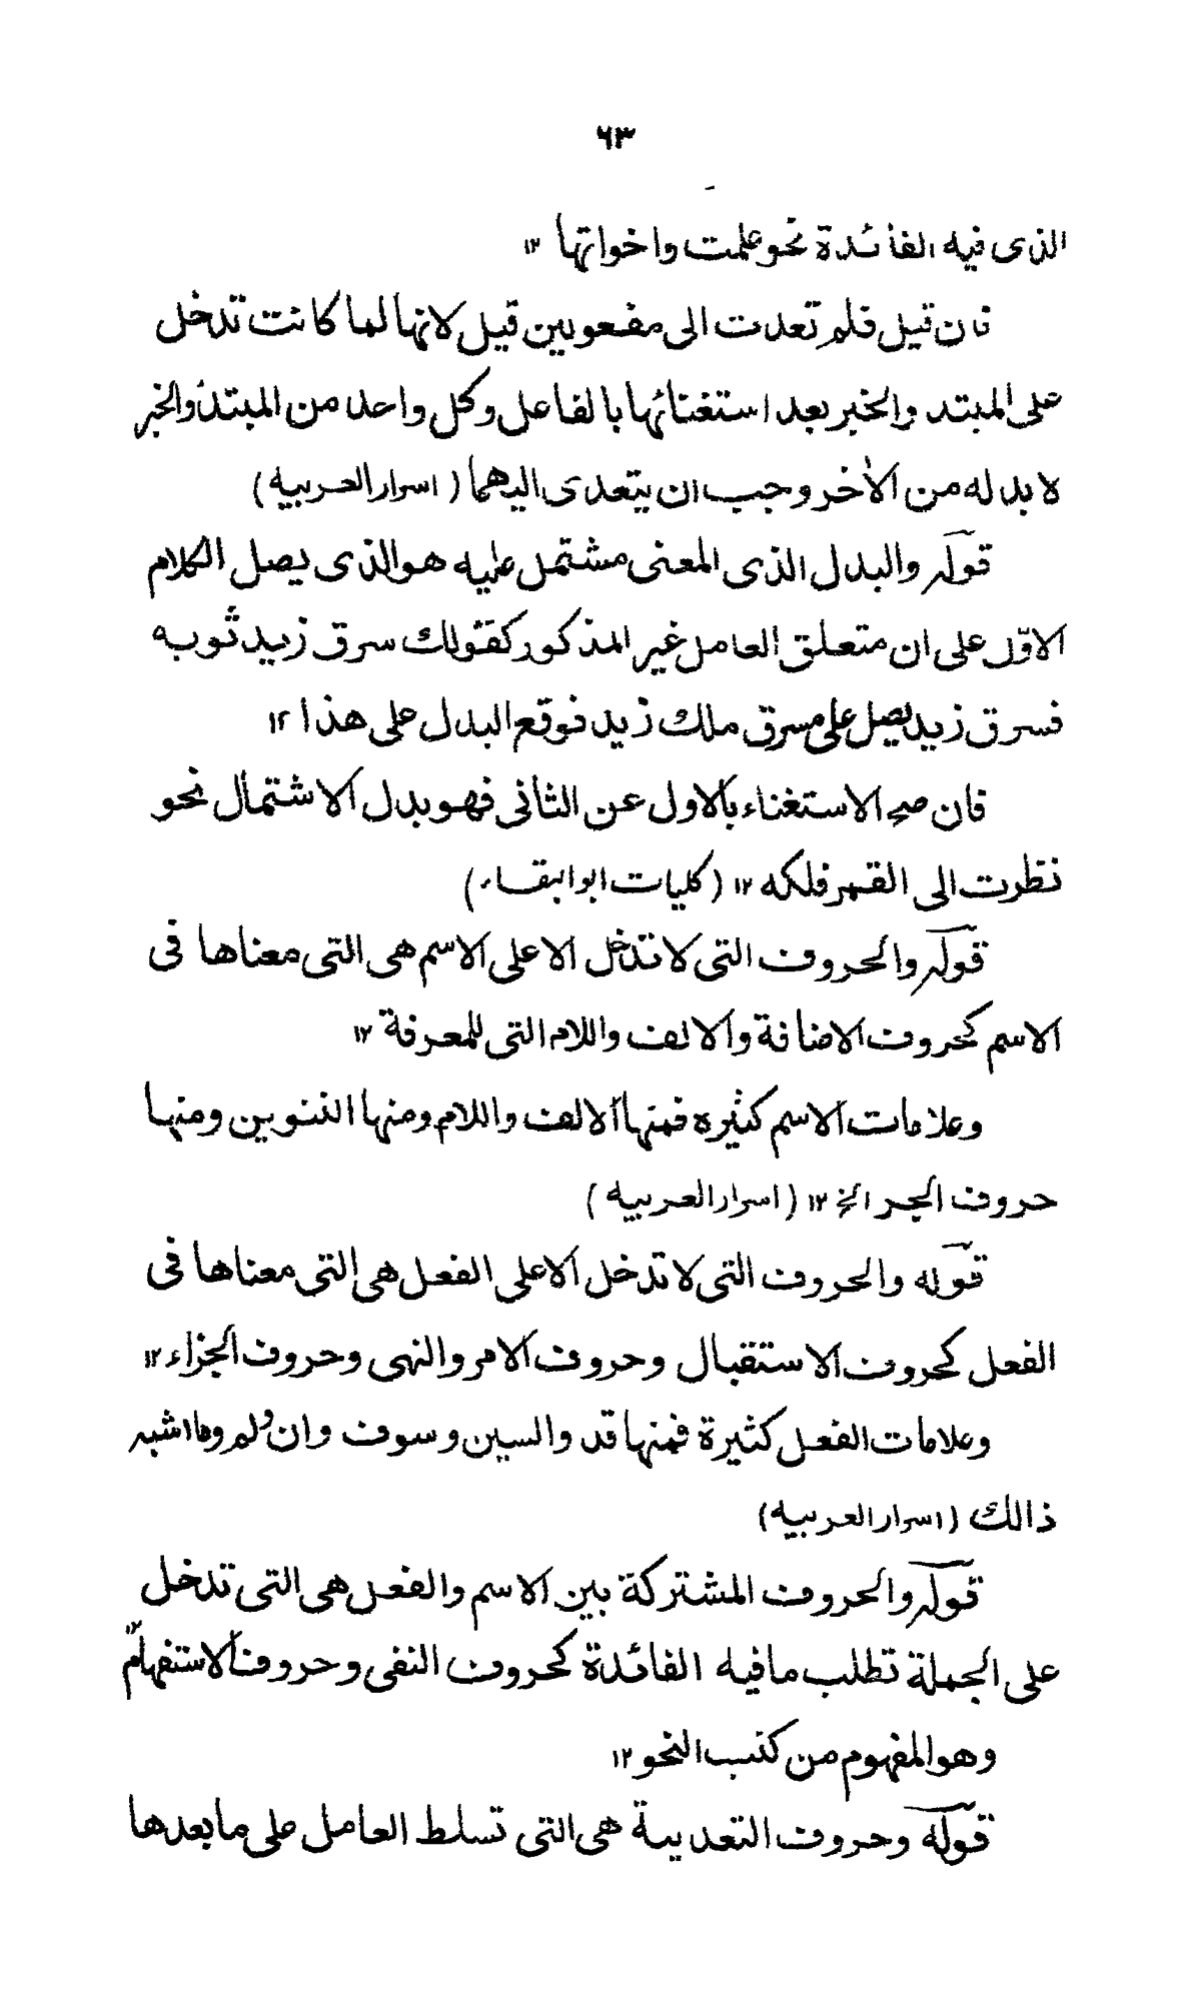 ٦٣
الذى فيه الفائدة نحو علمت واخواتها ١٢
فان قيل فلم تعدت الى مفعولين قيل لانها لما كانت تدخل
على المبتد والخبر بعد استغنائها بالفاعل وكل واحد من المبتدأ والخبر
لا بد له من الأخر وجب ان يتعدى اليهما (اسرار العربيه)
قوله والبدل الذى المعنى مشتمل عليه هو الذى يصل الكلام
الاوّل على ان متعلق العامل غير المذكور كقولك سرق زيد ثوبه
فسرق زيد يصل على سرق ملك زيد فوقع البدل على هذا ١٢
فان صح الاستغناء بالاول عن الثانى فهو بدل الاشتمال نحو
نظرت الى القمر فلكه ١٢ (كليات ابو البقاء)
قوله والحروف التى لا تدخل الا على الاسم هى التى معناها فى
الاسم كحروف الاضافة والالف واللام التى للمعرفة ١٢
وعلامات الاسم كثيره فمنها الالف واللام ومنها التنوين ومنها
حروف الجر الخ ١٢ (اسرار العربيه)
قوله والحروف التى لا تدخل الا على الفعل هى التى معناها فى
الفعل كحروف الاستقبال وحروف الامر والنهى وحروف الجزاء ١٢
وعلامات الفعل كثيرة فمنها قد والسين وسوف وان ولم وما اشبه
ذالك (اسرار العربيه)
قوله والحروف المشتركة بين الاسم والفعل هى التى تدخل
على الجملة تطلب ما فيه الفائدة كحروف النفى وحروف الاستفهام ١٢
وهو المفهوم من كتب النحو ١٢
قوله وحروف التعدية هى التى تسلط العامل على ما بعدها